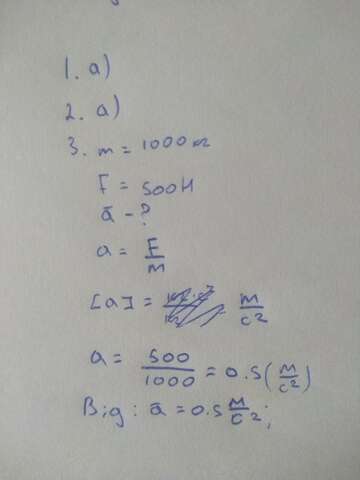 1. а)
2. а)
3. m = 1000 кг
F = 500Н
ā - ?
a = F/m
[a] = м/с²
a = 500/1000 = 0.5 (м/с²)
Від: ā = 0.5 м/с²;